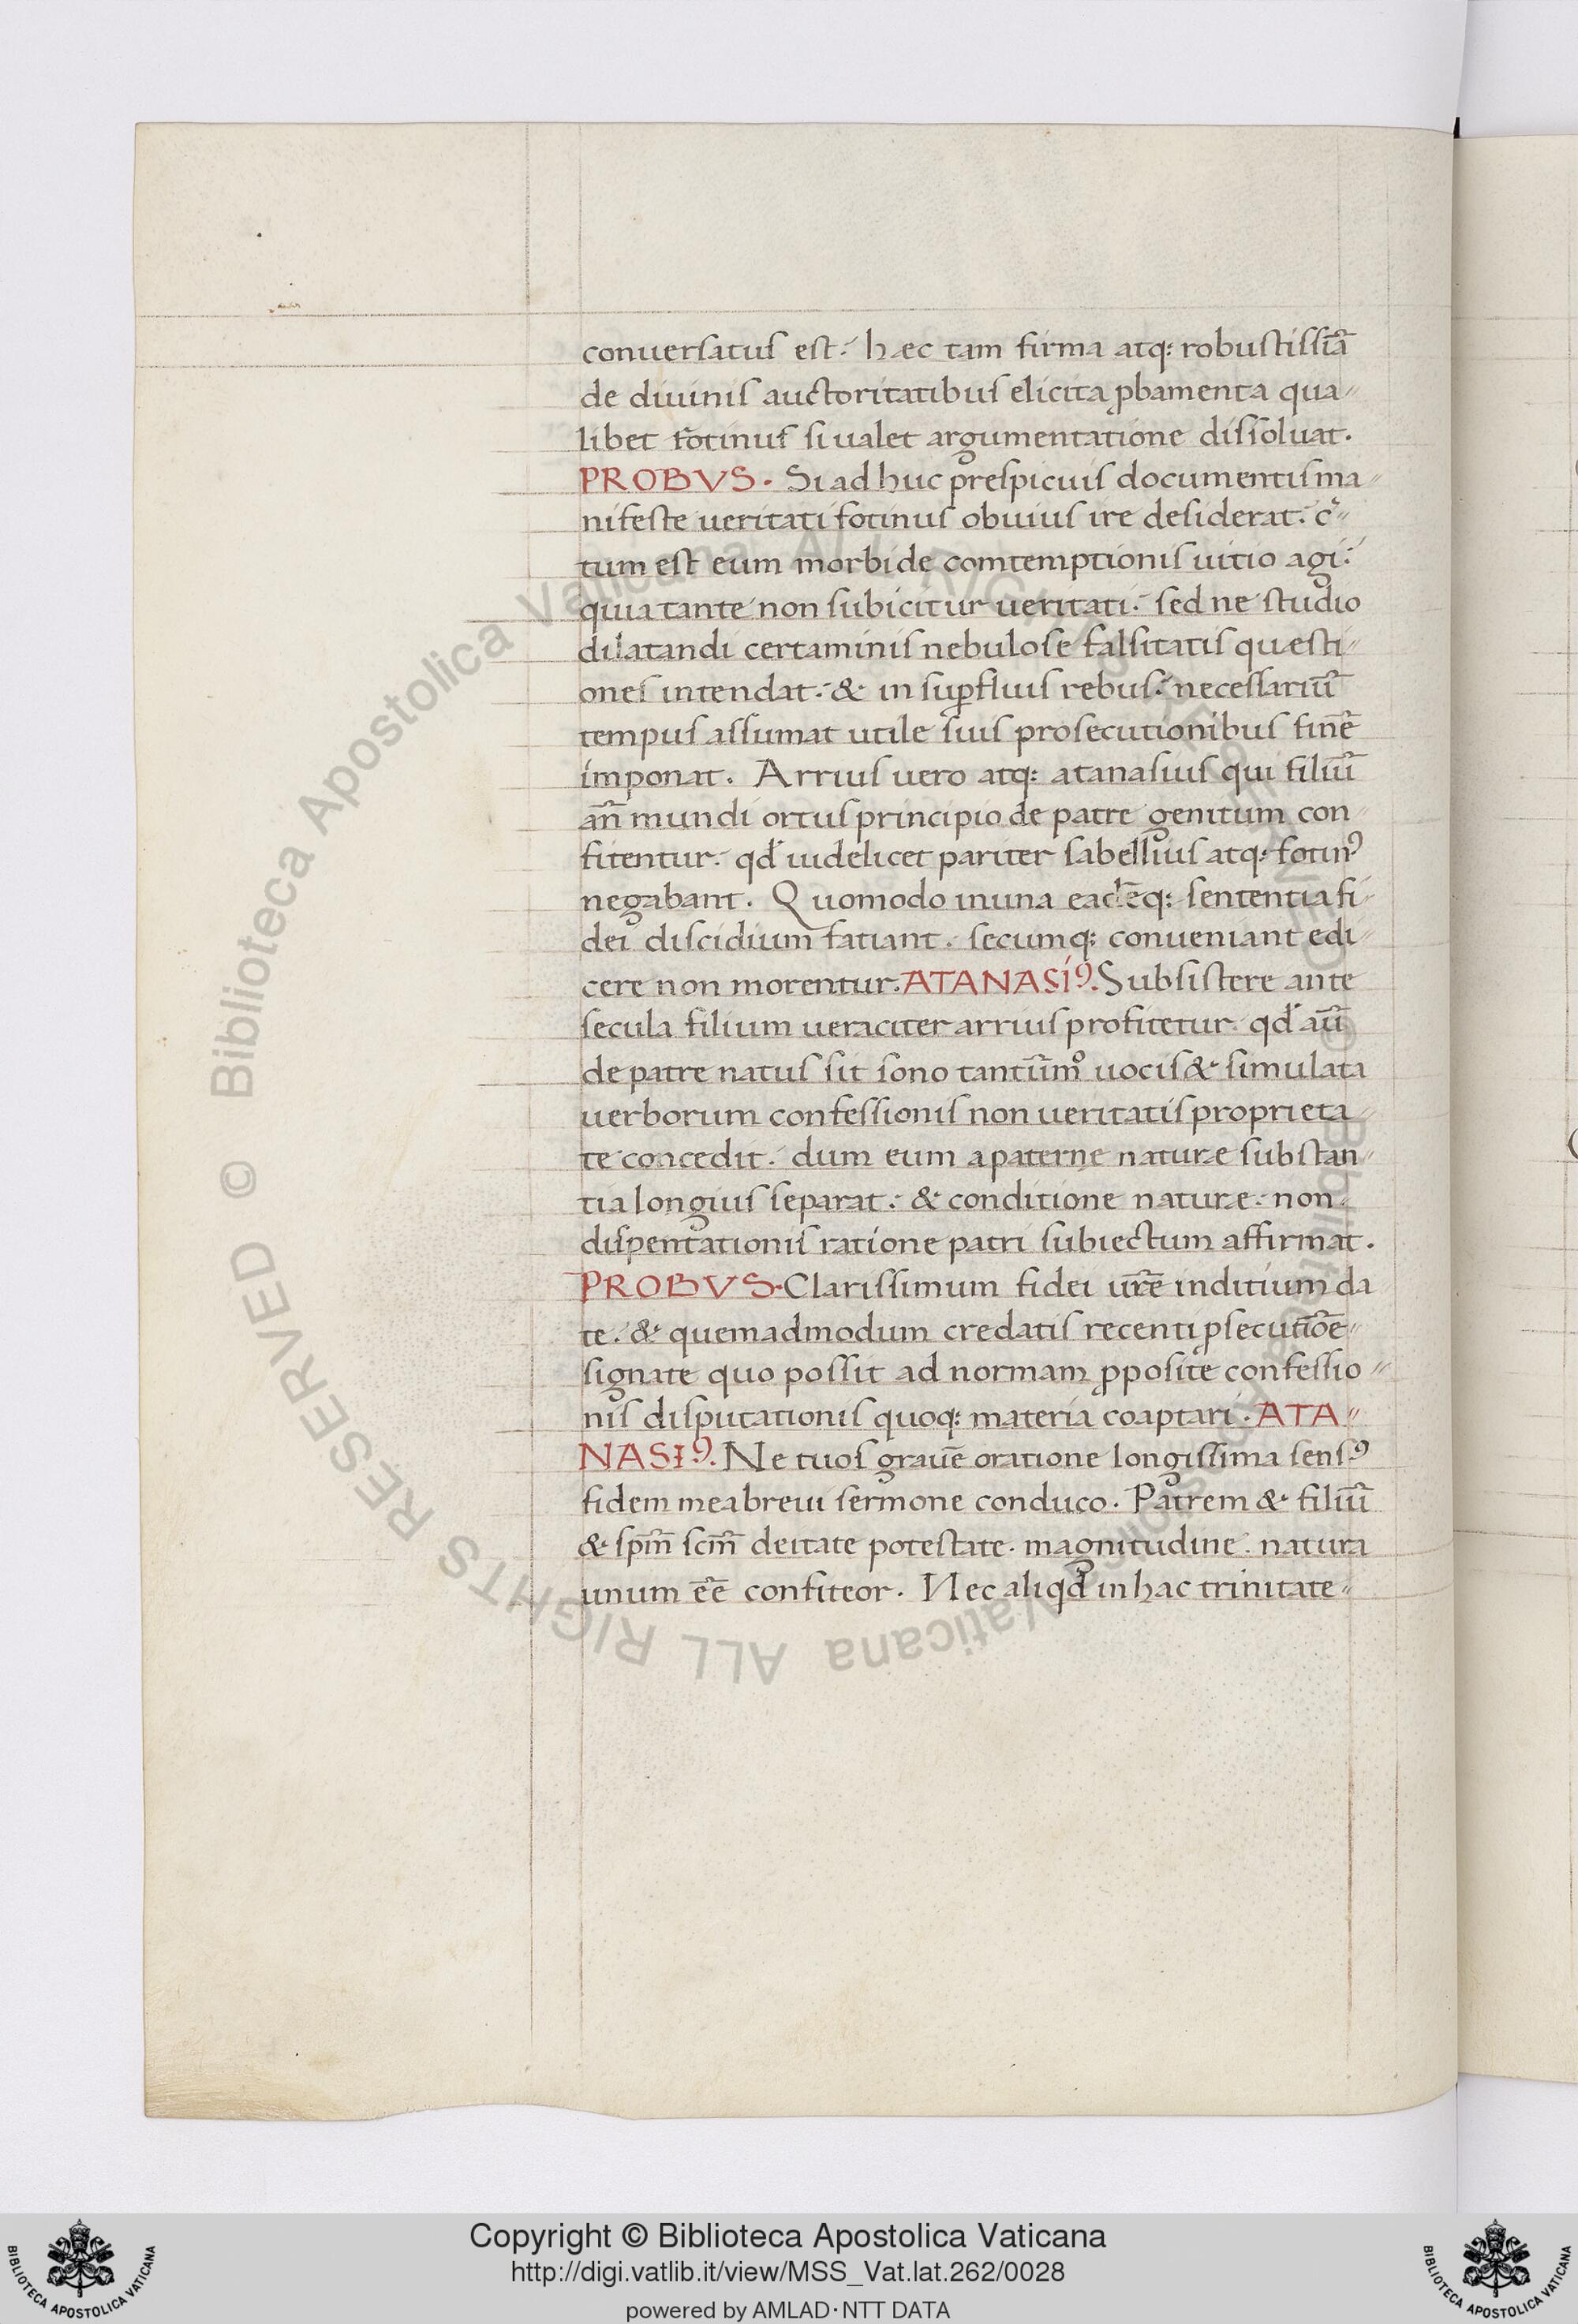 conuersatus est. hæc tam firma atq: robustissiā
de diuinis auctoritatibus elicita ꝓbamenta qua
libet fotinus si ualet argumentatione dissoluat.
PROBVS. Si ad huc prespicuis documentis ma
nifeste ueritati fotinus obuius ire desiderat. c̄
tum est eum morbide comtemptionis uitio agi.
quia tante non subicitur ueritati. sed ne studio
dilatandi certaminis nebulose falsitatis quæsti
ones intendat. & in suꝑfluis rebus. necessariū
tempus assumat utile suis prosecutionibus finē
imponat. Arrius uero atq: atanasius qui filiū
an̄ mundi ortus principio de patre genitum con
fitentur. qđ uidelicet pariter sabellius atq: fotinꝰ
negabant. Quomodo in una eadēq: sententia fi
dei discidium fatiant. secumq: conueniant edi
cere non morentur. ATANASIꝰ. Subsistere ante
secula filium ueraciter arrius profitetur. qđ aūt
de patre natus sit sono tantūmº uocis & simulata
uerborum confessionis non ueritatis proprieta
te concedit. dum eum a paterne naturæ substan
tia longius separat. & conditione naturæ. non
dispentationis ratione patri subiectum affirmat.
PROBVS. Clarissimum fidei ur̄e inditium da
te. & quemadmodum credatis recenti ꝓsecutiōe
signate quo possit ad normam ꝓposite confessio
nis disputationis quoq: materia coaptari. ATA
NASIꝰ. Ne tuos grauē oratione longissima sensꝰ
fidem mea breui sermone conduco. Patrem & filiū
& sp̄m sc̄m deitate potestate. magnitudine. natura
unum ēē confiteor. Nec aliqđ in hac trinitate
© Biblioteca Apostolica Vaticana ALL RIGHTS RESERVED
© Biblioteca Apostolica Vaticana ALL RIGHTS RESERVED
Copyright © Biblioteca Apostolica Vaticana
http://digi.vatlib.it/view/MSS_Vat.lat.262/0028
powered by AMLAD·NTT DATA
BIBLIOTECA APOSTOLICA VATICANA
BIBLIOTECA APOSTOLICA VATICANA